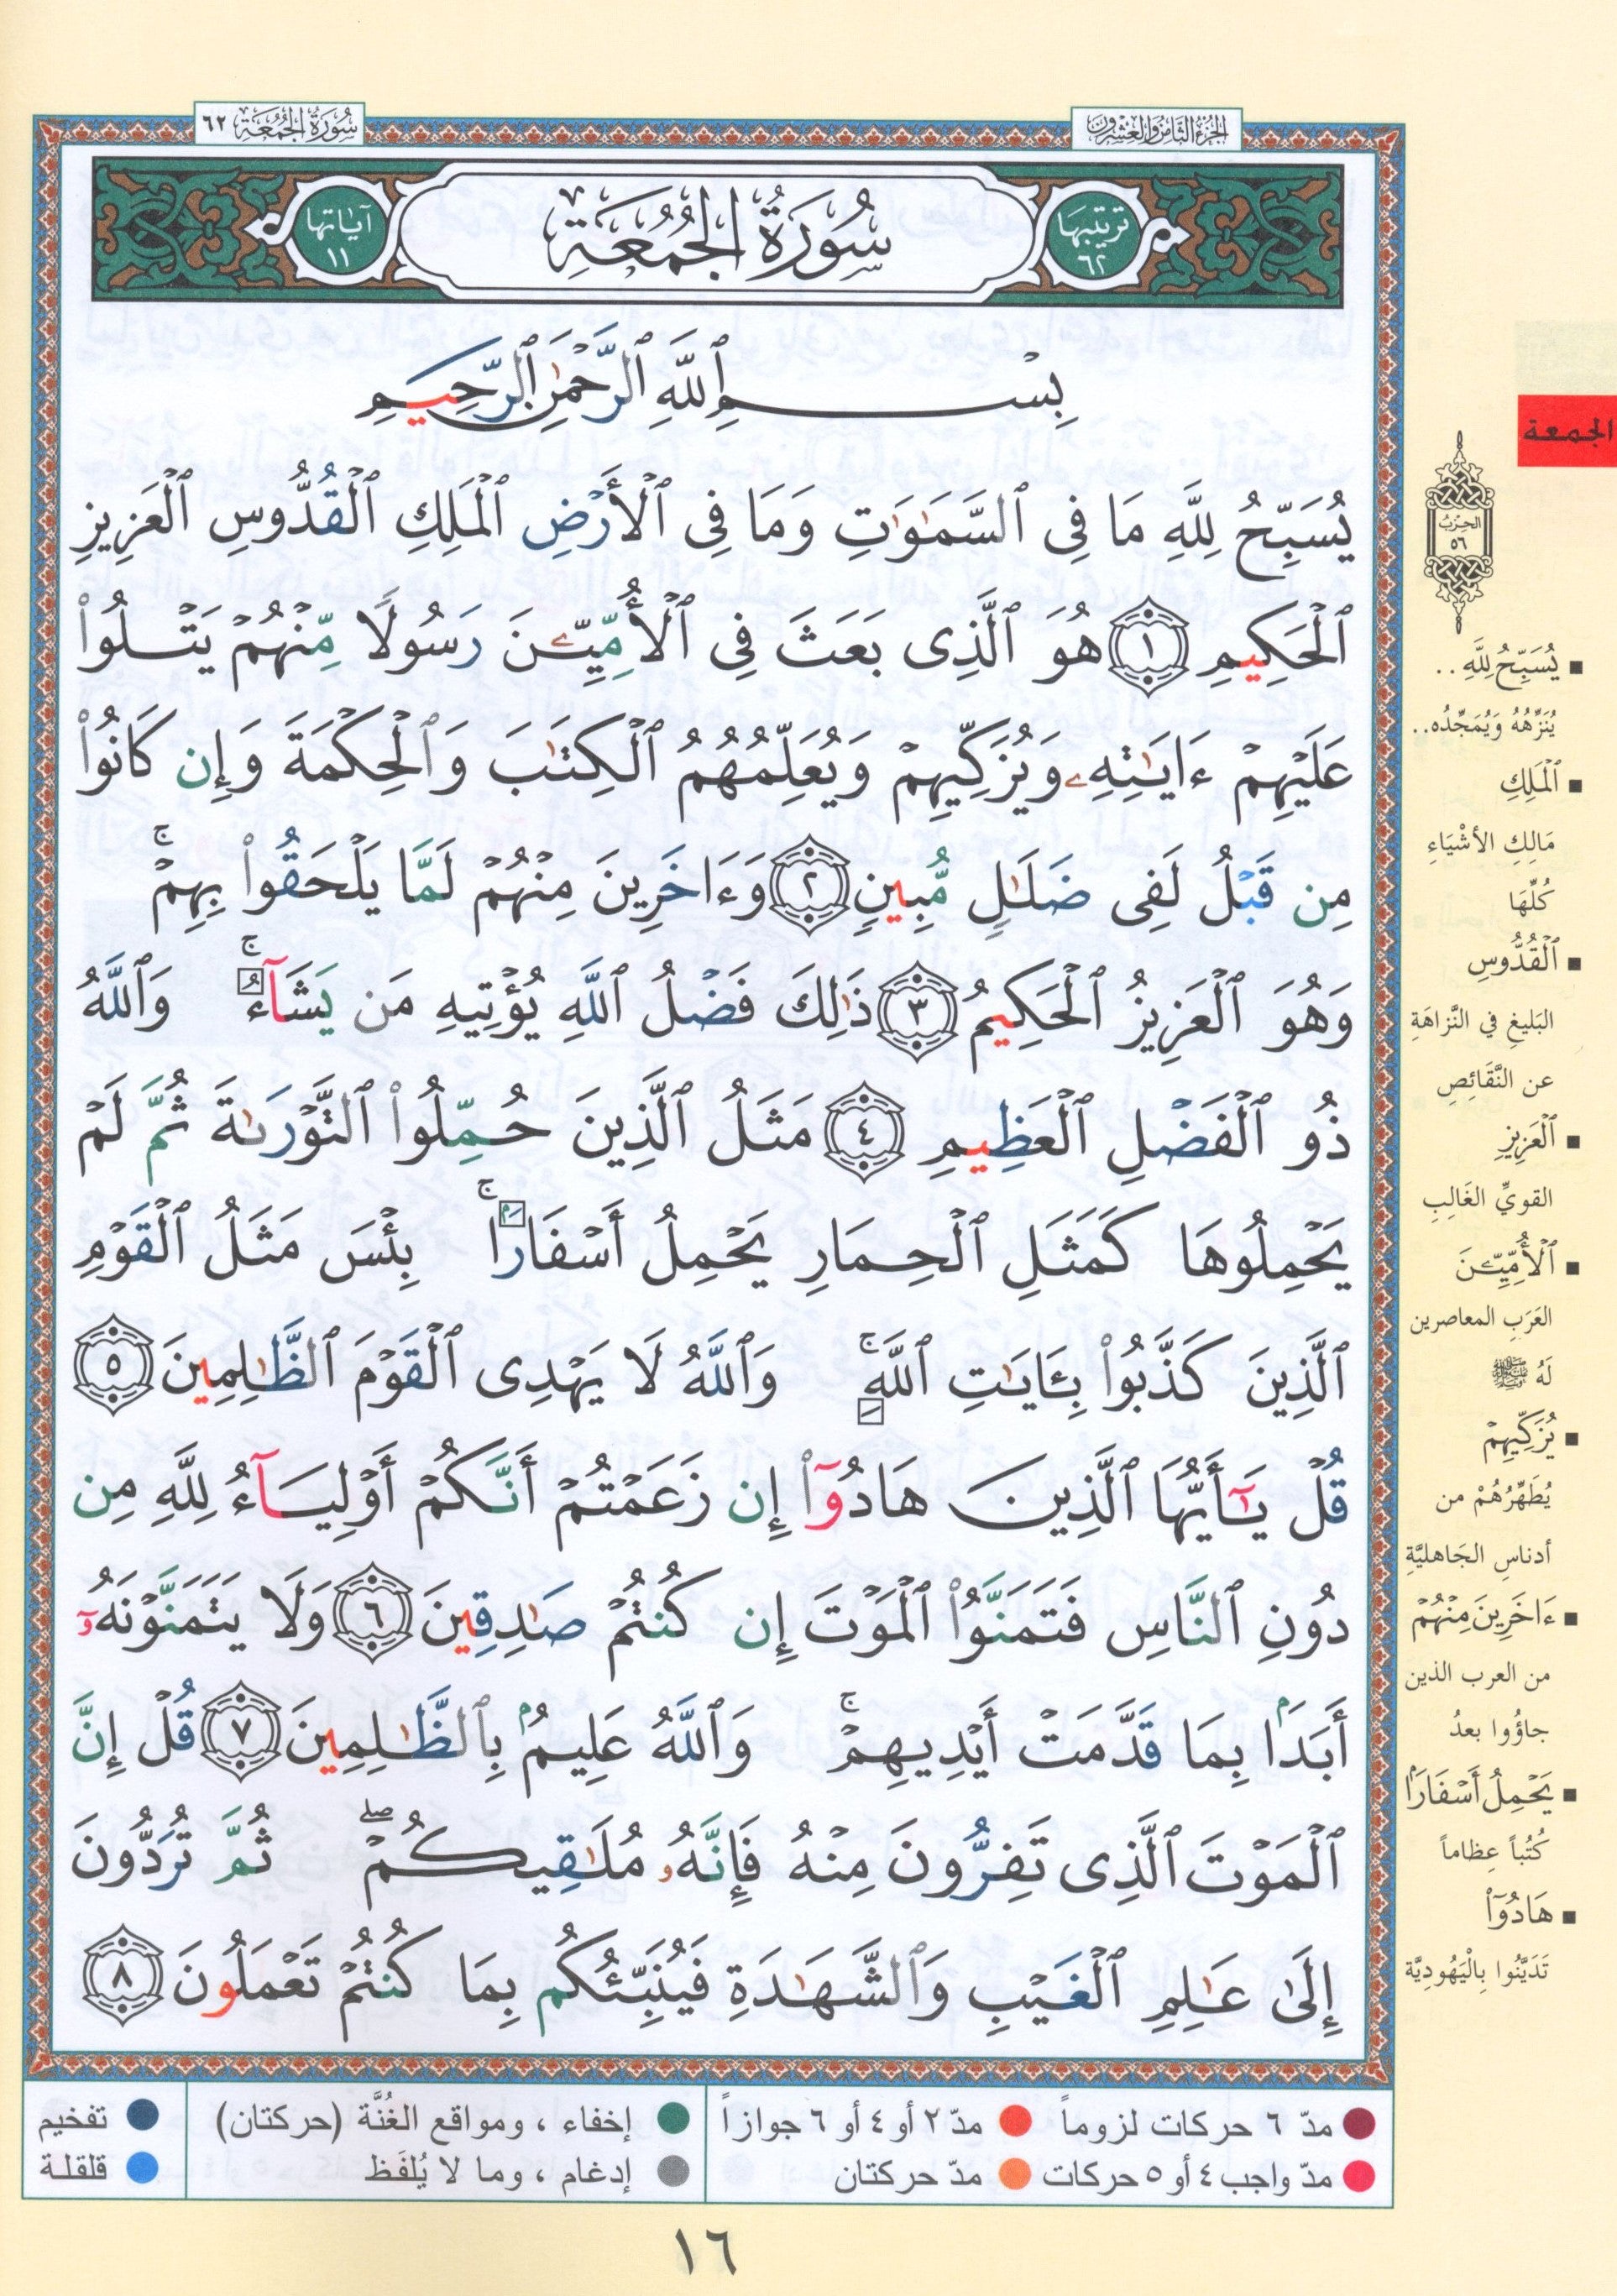 الجزء الثامن والعشرون
سورة الجمعة ٦٢
ترتيبها ٦٢
سُورَةُ الجُمُعَةِ
آياتها ١١
بِسْمِ ٱللَّهِ ٱلرَّحْمَٰنِ ٱلرَّحِيمِ
يُسَبِّحُ لِلَّهِ مَا فِى ٱلسَّمَٰوَٰتِ وَمَا فِى ٱلْأَرْضِ ٱلْمَلِكِ ٱلْقُدُّوسِ ٱلْعَزِيزِ
ٱلْحَكِيمِ ١ هُوَ ٱلَّذِى بَعَثَ فِى ٱلْأُمِّيِّۦنَ رَسُولًا مِّنْهُمْ يَتْلُوا۟
عَلَيْهِمْ ءَايَٰتِهِۦ وَيُزَكِّيهِمْ وَيُعَلِّمُهُمُ ٱلْكِتَٰبَ وَٱلْحِكْمَةَ وَإِن كَانُوا۟
مِن قَبْلُ لَفِى ضَلَٰلٍ مُّبِينٍ ٢ وَءَاخَرِينَ مِنْهُمْ لَمَّا يَلْحَقُوا۟ بِهِمْ ۚ
وَهُوَ ٱلْعَزِيزُ ٱلْحَكِيمُ ٣ ذَٰلِكَ فَضْلُ ٱللَّهِ يُؤْتِيهِ مَن يَشَآءُ ۚ وَٱللَّهُ
ذُو ٱلْفَضْلِ ٱلْعَظِيمِ ٤ مَثَلُ ٱلَّذِينَ حُمِّلُوا۟ ٱلتَّوْرَىٰةَ ثُمَّ لَمْ
يَحْمِلُوهَا كَمَثَلِ ٱلْحِمَارِ يَحْمِلُ أَسْفَارًۢا ۚ بِئْسَ مَثَلُ ٱلْقَوْمِ
ٱلَّذِينَ كَذَّبُوا۟ بِـَٔايَٰتِ ٱللَّهِ ۚ وَٱللَّهُ لَا يَهْدِى ٱلْقَوْمَ ٱلظَّٰلِمِينَ ٥
قُلْ يَٰٓأَيُّهَا ٱلَّذِينَ هَادُوٓا۟ إِن زَعَمْتُمْ أَنَّكُمْ أَوْلِيَآءُ لِلَّهِ مِن
دُونِ ٱلنَّاسِ فَتَمَنَّوُا۟ ٱلْمَوْتَ إِن كُنتُمْ صَٰدِقِينَ ٦ وَلَا يَتَمَنَّوْنَهُۥٓ
أَبَدًۢا بِمَا قَدَّمَتْ أَيْدِيهِمْ ۚ وَٱللَّهُ عَلِيمٌۢ بِٱلظَّٰلِمِينَ ٧ قُلْ إِنَّ
ٱلْمَوْتَ ٱلَّذِى تَفِرُّونَ مِنْهُ فَإِنَّهُۥ مُلَٰقِيكُمْ ۖ ثُمَّ تُرَدُّونَ
إِلَىٰ عَٰلِمِ ٱلْغَيْبِ وَٱلشَّهَٰدَةِ فَيُنَبِّئُكُم بِمَا كُنتُمْ تَعْمَلُونَ ٨
الجمعة
الحزب
٥٦
▪ يُسَبِّحُ لِلَّهِ ..
يُنَزِّهُهُ وَيُمَجِّدُه..
▪ ٱلْمَلِكِ
مَالِكِ الأشْيَاءِ
كُلِّهَا
▪ ٱلْقُدُّوسِ
البَليغِ في النَّزاهَةِ
عن النَّقَائِصِ
▪ ٱلْعَزِيزِ
القويِّ الغَالِبِ
▪ ٱلْأُمِّيِّۦنَ
العَرَبِ المعاصرين
لَهُ ﷺ
▪ يُزَكِّيهِمْ
يُطَهِّرُهُمْ من
أدناسِ الجَاهليَّةِ
▪ ءَاخَرِينَ مِنْهُمْ
من العرب الذين
جاؤُوا بعدُ
▪ يَحْمِلُ أَسْفَارًۢا
كُتُباً عِظاماً
▪ هَادُوٓا۟
تَدَيَّنُوا بِالْيَهُودِيَّة
مدّ ٦ حركات لزوماً ● مدّ ٢ أو ٤ أو ٦ جوازاً ● إخفاء ، ومواقع الغُنَّة (حركتان) ● تفخيم
مدّ واجب ٤ أو ٥ حركات ● مدّ حركتان ● إدغام ، وما لا يُلفَظ ● قلقلة
١٦